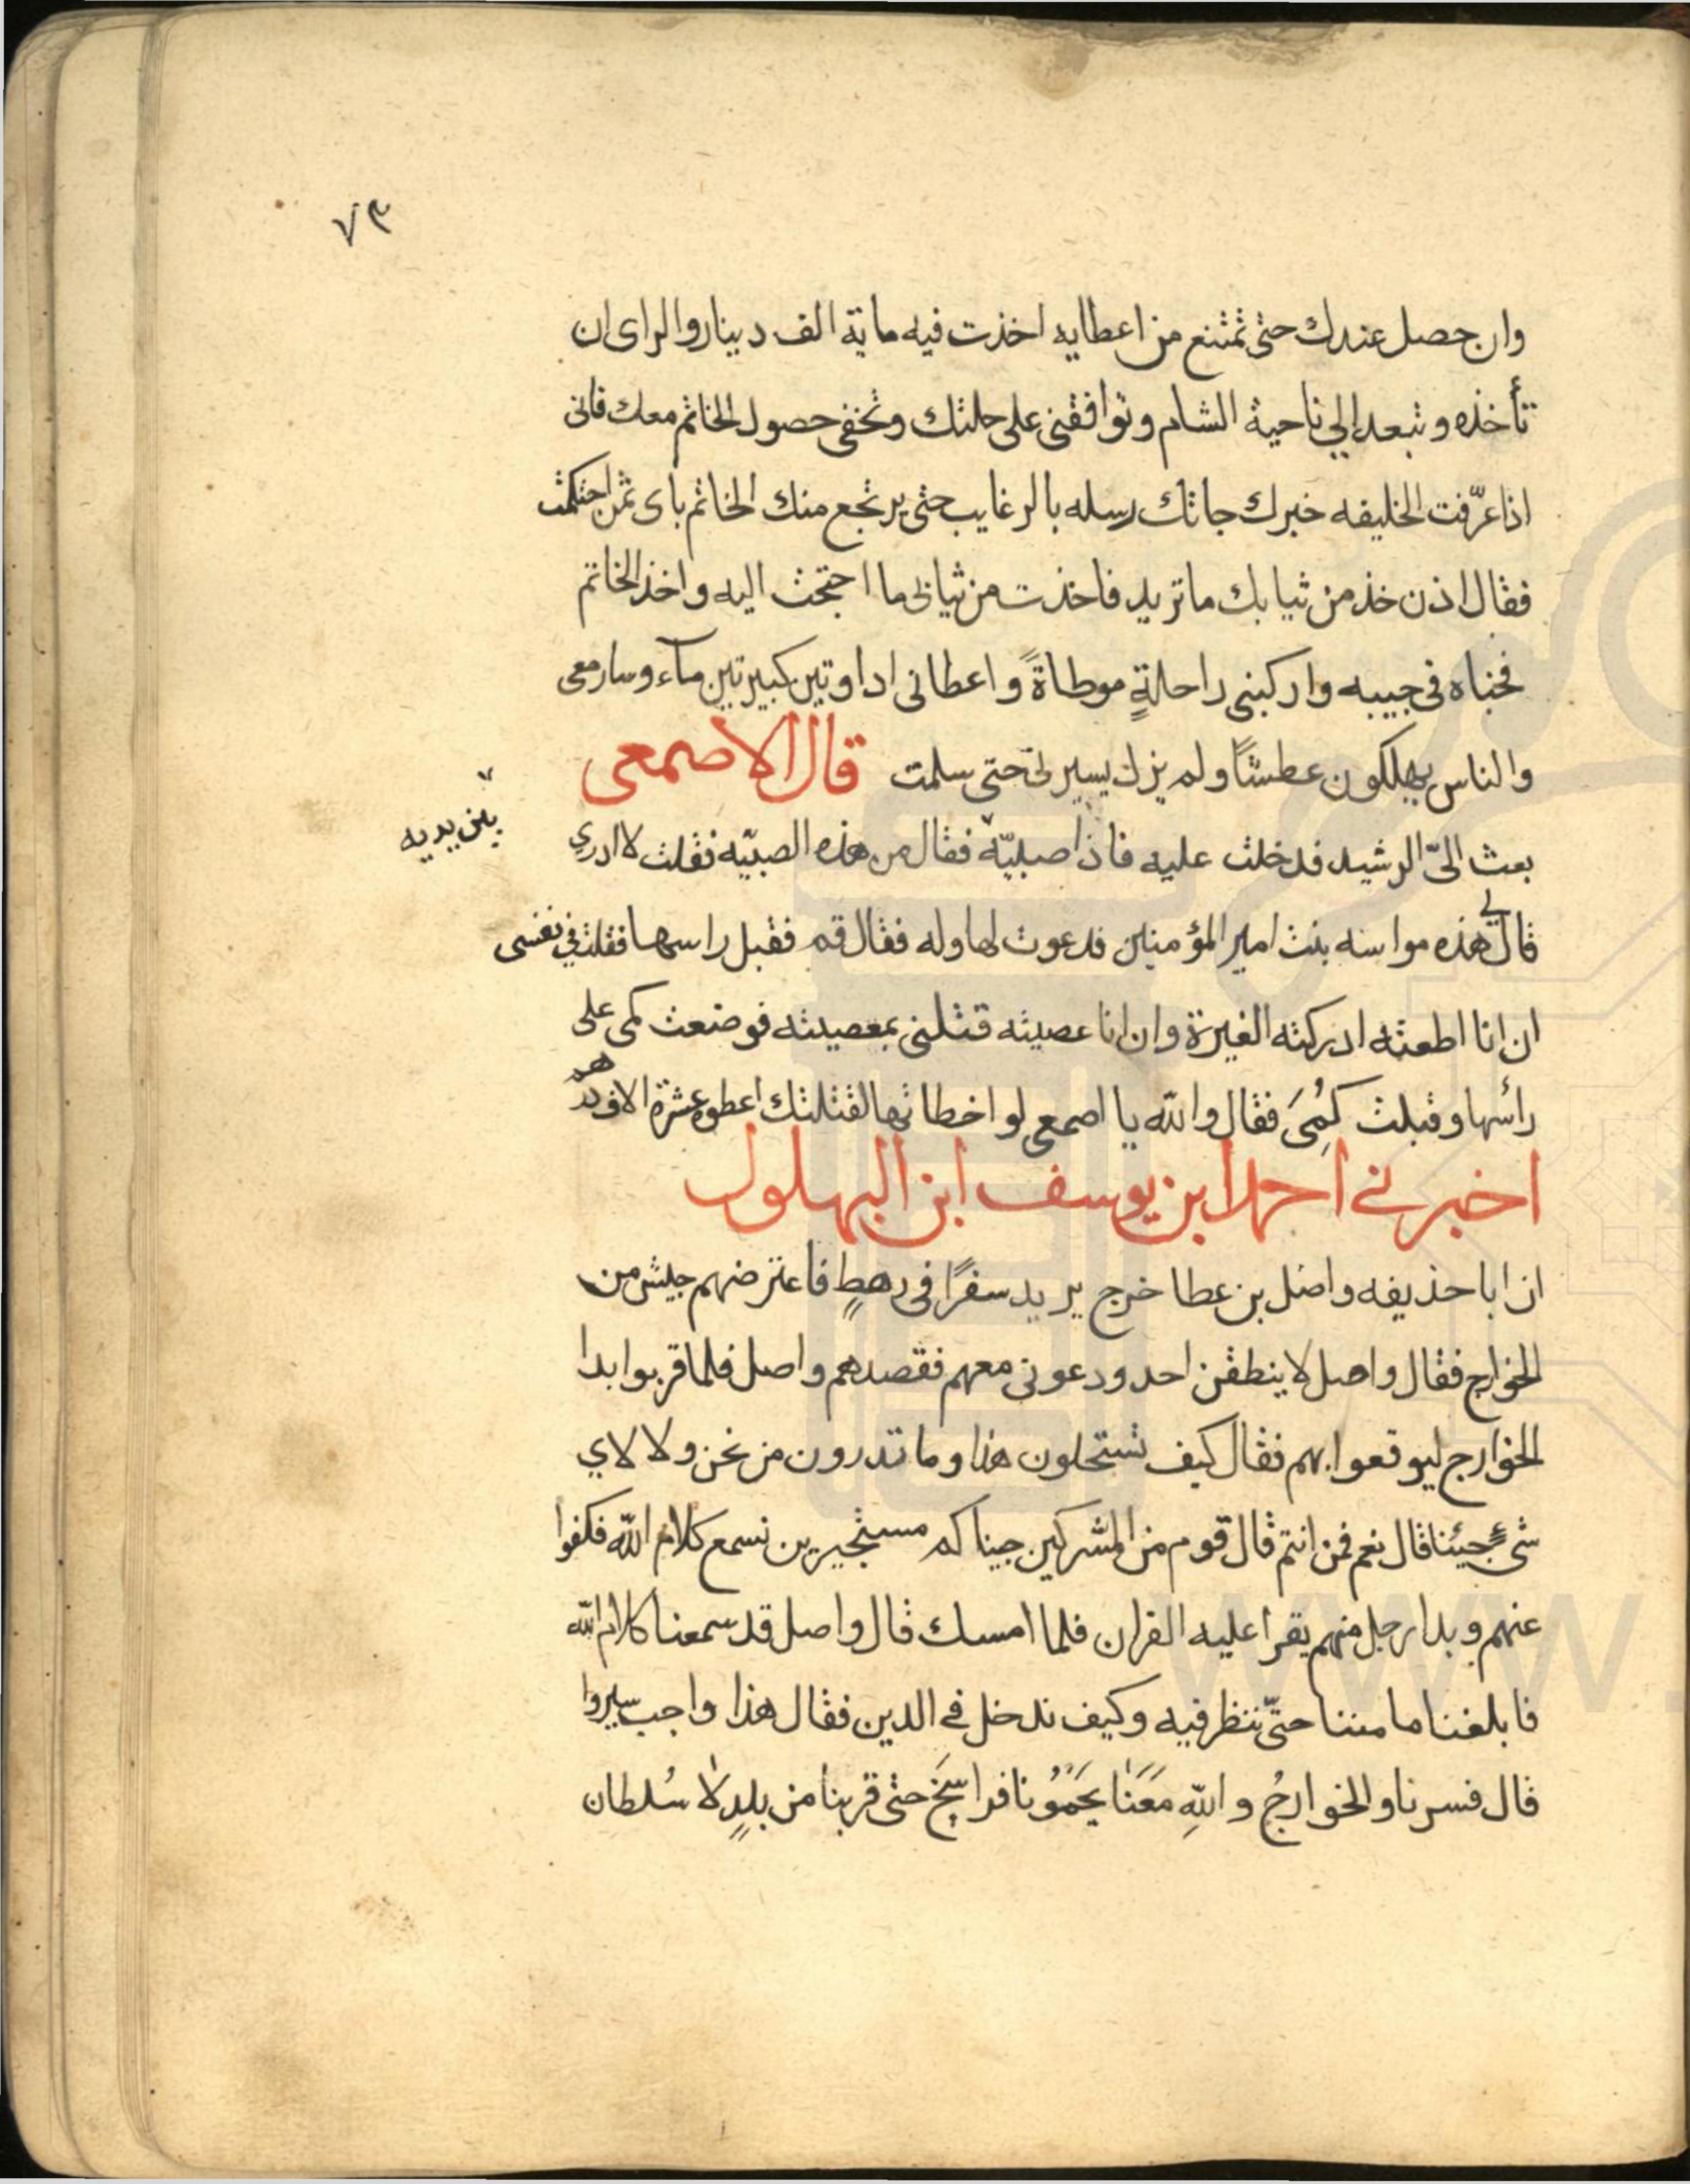 ٧٣
وان حصل عندك حتى تمتنع من اعطايه اخذت فيه ماية الف دينار والراى ان
تأخذه وتبعد الي ناحية الشام وتوافقنى على حلتك وتخفى حصول الخاتم معك فانى
اذا عرّفت الخليفه خبرك جاتك رسله بالرغايب حتى يرتجع منك الخاتم باى ثمن احتكمت
فقال اذن خذ من ثيابك ما تريد فاخذت من ثيابى ما احتجت اليه واخذ الخاتم
فخباه فى جيبه واركبنى راحلةٍ موطاةً واعطانى اداوتين كبيرتين مآء وسار معى
والناس يهلكون عطشًا ولم يزل يسير بى حتى سلمت قال الاصمعى
بعث الىّ الرشيد فدخلت عليه فاذا صبيّه فقال من هذه الصبيّه فقلت لا ادري
بين يديه
قال لي هذه مواسنه بنت امير المؤمنين فدعوت لها وله فقال قم فقبل راسها فقلت في نفسى
ان انا اطعته ادركته الغيرة وان انا عصيته قتلنى بمعصيته فوضعت كمى على
رأسها وقبلت كمى فقال والله يا اصمعى لو اخطاتها لقتلتك اعطوه عشرة الاف درهم
اخبرني احمد ابن يوسف ابن البهلول
ان ابا حذيفه واصل بن عطا خرج يريد سفرًا فى رهطٍ فاعترضهم جيش من
الخوارج فقال واصل لا ينطقن احد ودعونى معهم فقصدهم واصل فلما قربوا بدا
الخوارج ليوقعوا بهم فقال كيف تستحلون هذا وما تدرون من نحن ولا لاي
شىءٍ جيئنا قال نعم فمن انتم قال قوم من المشركين جيناكم مستجيرين نسمع كلام الله فكفوا
عنهم وبدا رجل منهم يقرا عليه القران فلما امسك قال واصل قد سمعنا كلام الله
فابلغنا مامننا حتّى ننظر فيه وكيف ندخل في الدين فقال هذا واجب سيروا
قال فسرنا والخوارجُ واللهِ مَعَنَا يَحمُونا فراسخَ حتى قربنا من بلدٍ لا سُلطان